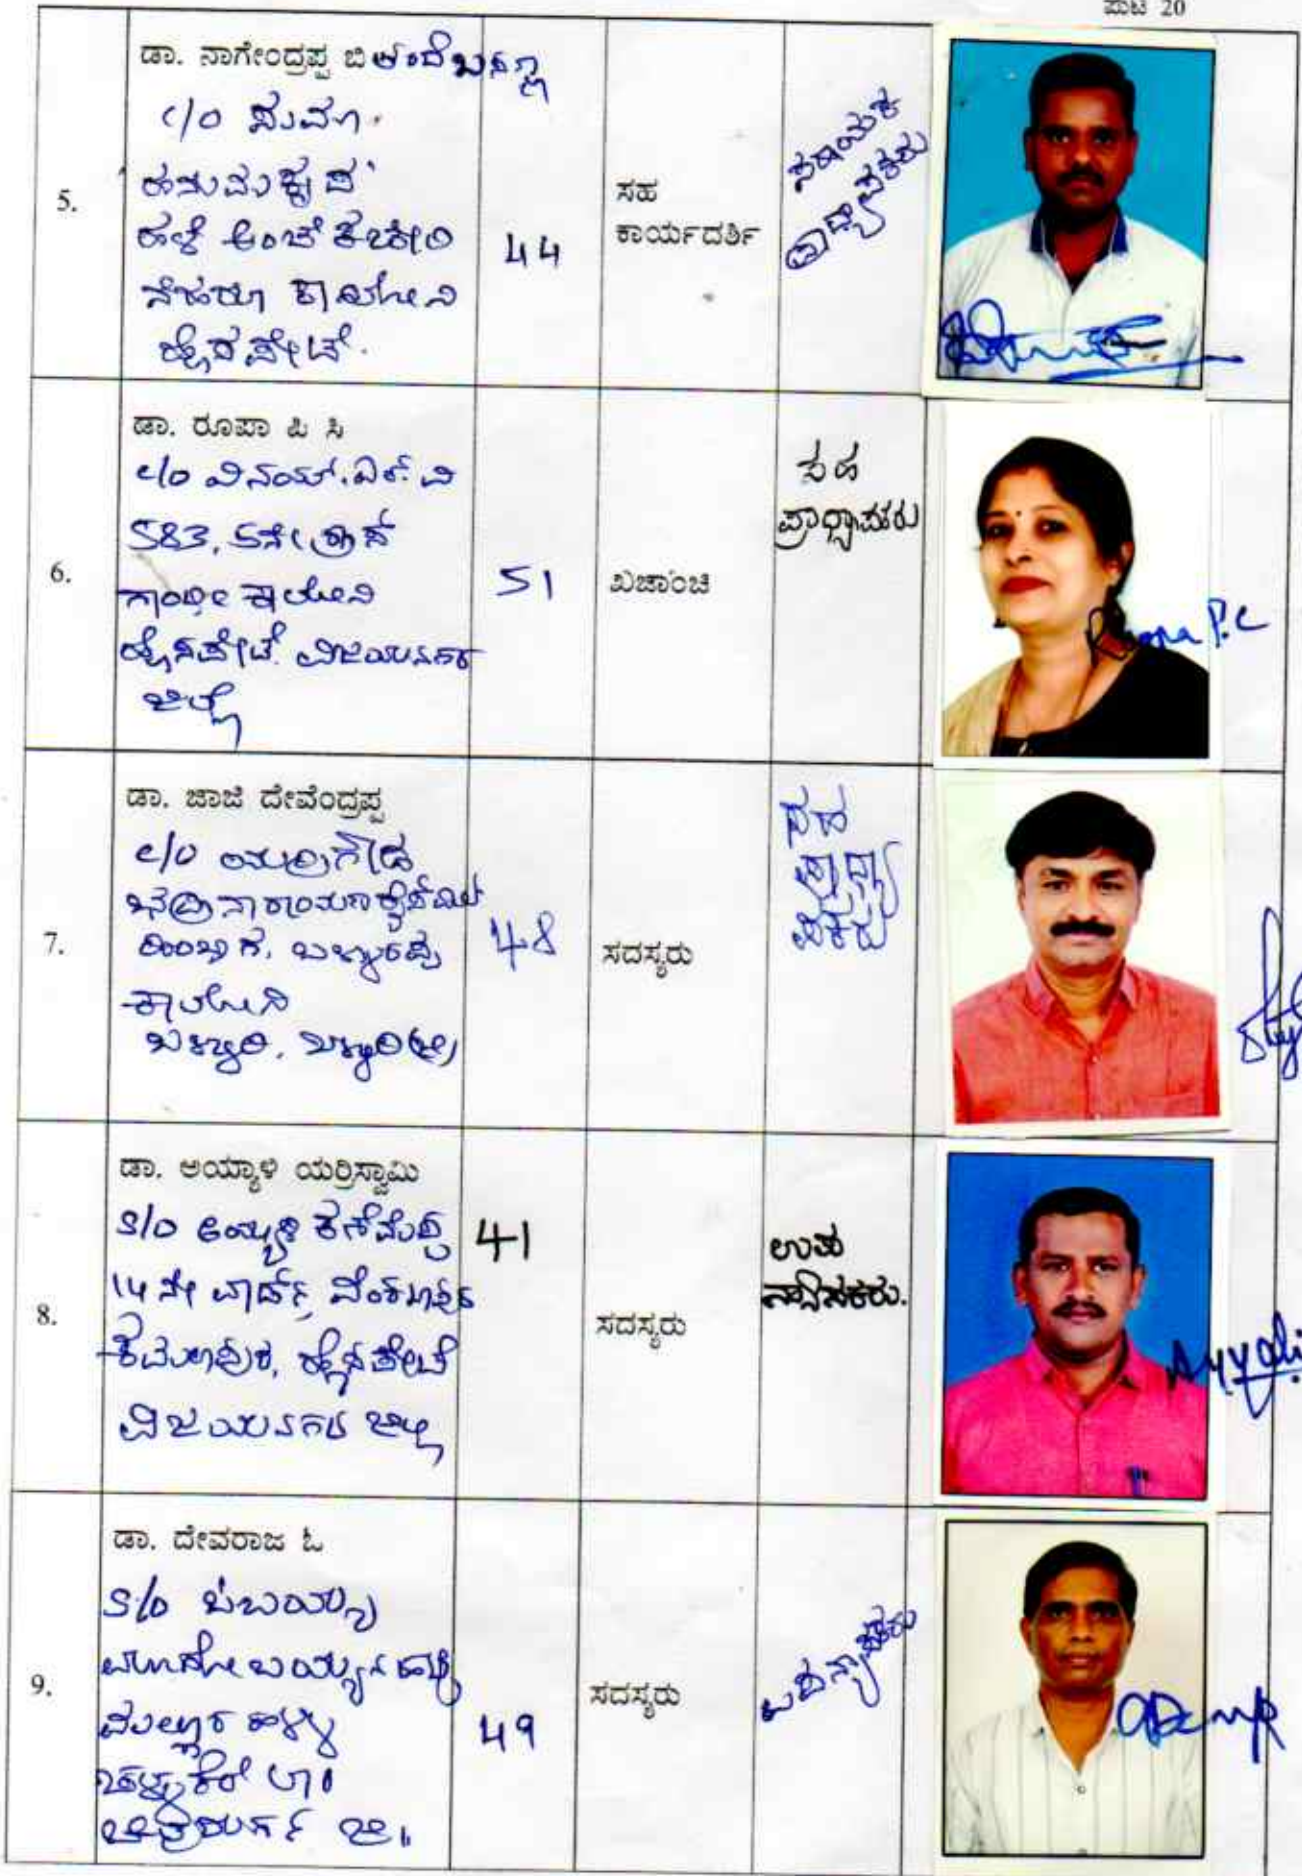 ಪುಟ 20
5.
ಡಾ. ನಾಗೇಂದ್ರಪ್ಪ ಬಿ
c/o
ಹಳೆ ಅಂಚೆ ಕಚೇರಿ
ನೆಹರೂ ಕಾಲೋನಿ
ಹೊಸಪೇಟೆ.
44
ಸಹ
ಕಾರ್ಯದರ್ಶಿ
ಸಹಾಯಕ
ಪ್ರಾಧ್ಯಾಪಕರು
6.
ಡಾ. ರೂಪಾ ಪಿ ಸಿ
c/o ವಿನಯ್. ಎಲ್. ವಿ
583, 5ನೇ ಕ್ರಾಸ್
ಗಾಂಧೀ ಕಾಲೋನಿ
ಹೊಸಪೇಟೆ. ವಿಜಯನಗರ
ಜಿಲ್ಲೆ
51
ಖಜಾಂಚಿ
ಸಹ
ಪ್ರಾಧ್ಯಾಪಕರು
Roopa P.C
7.
ಡಾ. ಜಾಜಿ ದೇವೆಂದ್ರಪ್ಪ
c/o ಯರ್ರಿಗೌಡ
ಹಿಂಭಾಗ,
ಕಾಲೋನಿ
ಬಳ್ಳಾರಿ, ಬಳ್ಳಾರಿ (ಜಿ)
48
ಸದಸ್ಯರು
ಸಹ
ಪ್ರಾಧ್ಯಾ
ಪಕರು
8.
ಡಾ. ಅಯ್ಯಾಳಿ ಯರ್ರಿಸ್ವಾಮಿ
S/o ಅಯ್ಯಾಳಿ
14 ನೇ ವಾರ್ಡ್, ವೆಂಕಟಾಪುರ
ಕಮಲಾಪುರ, ಹೊಸಪೇಟೆ
ವಿಜಯನಗರ ಜಿಲ್ಲೆ
41
ಸದಸ್ಯರು
ಉಪ
ನ್ಯಾಸಕರು.
Ayyali
9.
ಡಾ. ದೇವರಾಜ ಓ
S/o
ಚಳ್ಳಕೆರೆ ತಾ॥
ಚಿತ್ರದುರ್ಗ ಜಿ॥
49
ಸದಸ್ಯರು
ಉಪನ್ಯಾಸಕರು